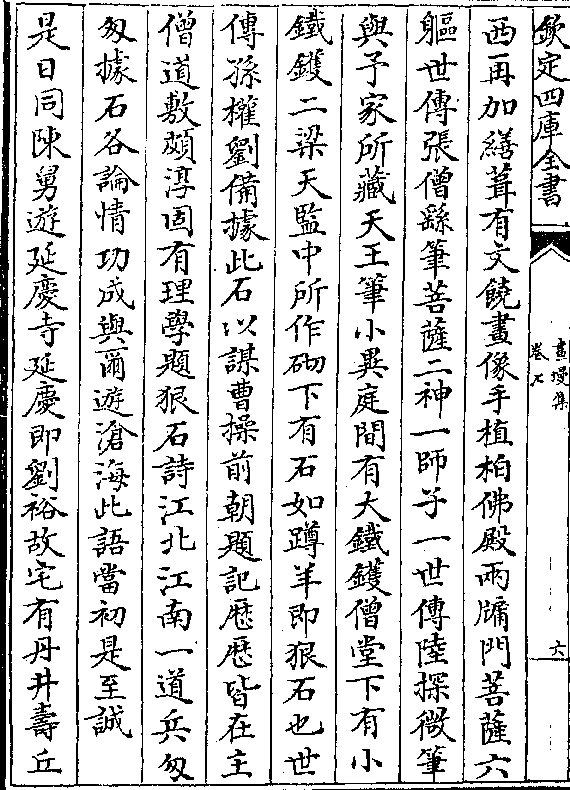 欽定四庫全書
畫墁集
卷七
六
西再加繕葺有文饒畫像手植柏佛殿兩牖門菩薩六
軀世傳張僧繇筆菩薩二神一師子一世傳陸探微筆
與予家所藏天王筆小異庭間有大鐵鑊僧堂下有小
鐵鑊二梁天監中所作砌下有石如蹲羊即狠石也世
傳孫權劉備據此石以謀曹操前朝題記歴歴皆在主
僧道敷頗淳固有理學題狠石詩江北江南一道兵匆
匆據石各論情功成與爾遊滄海此語當初是至誠
是日同陳舅遊延慶寺延慶即劉裕故宅有丹井壽丘